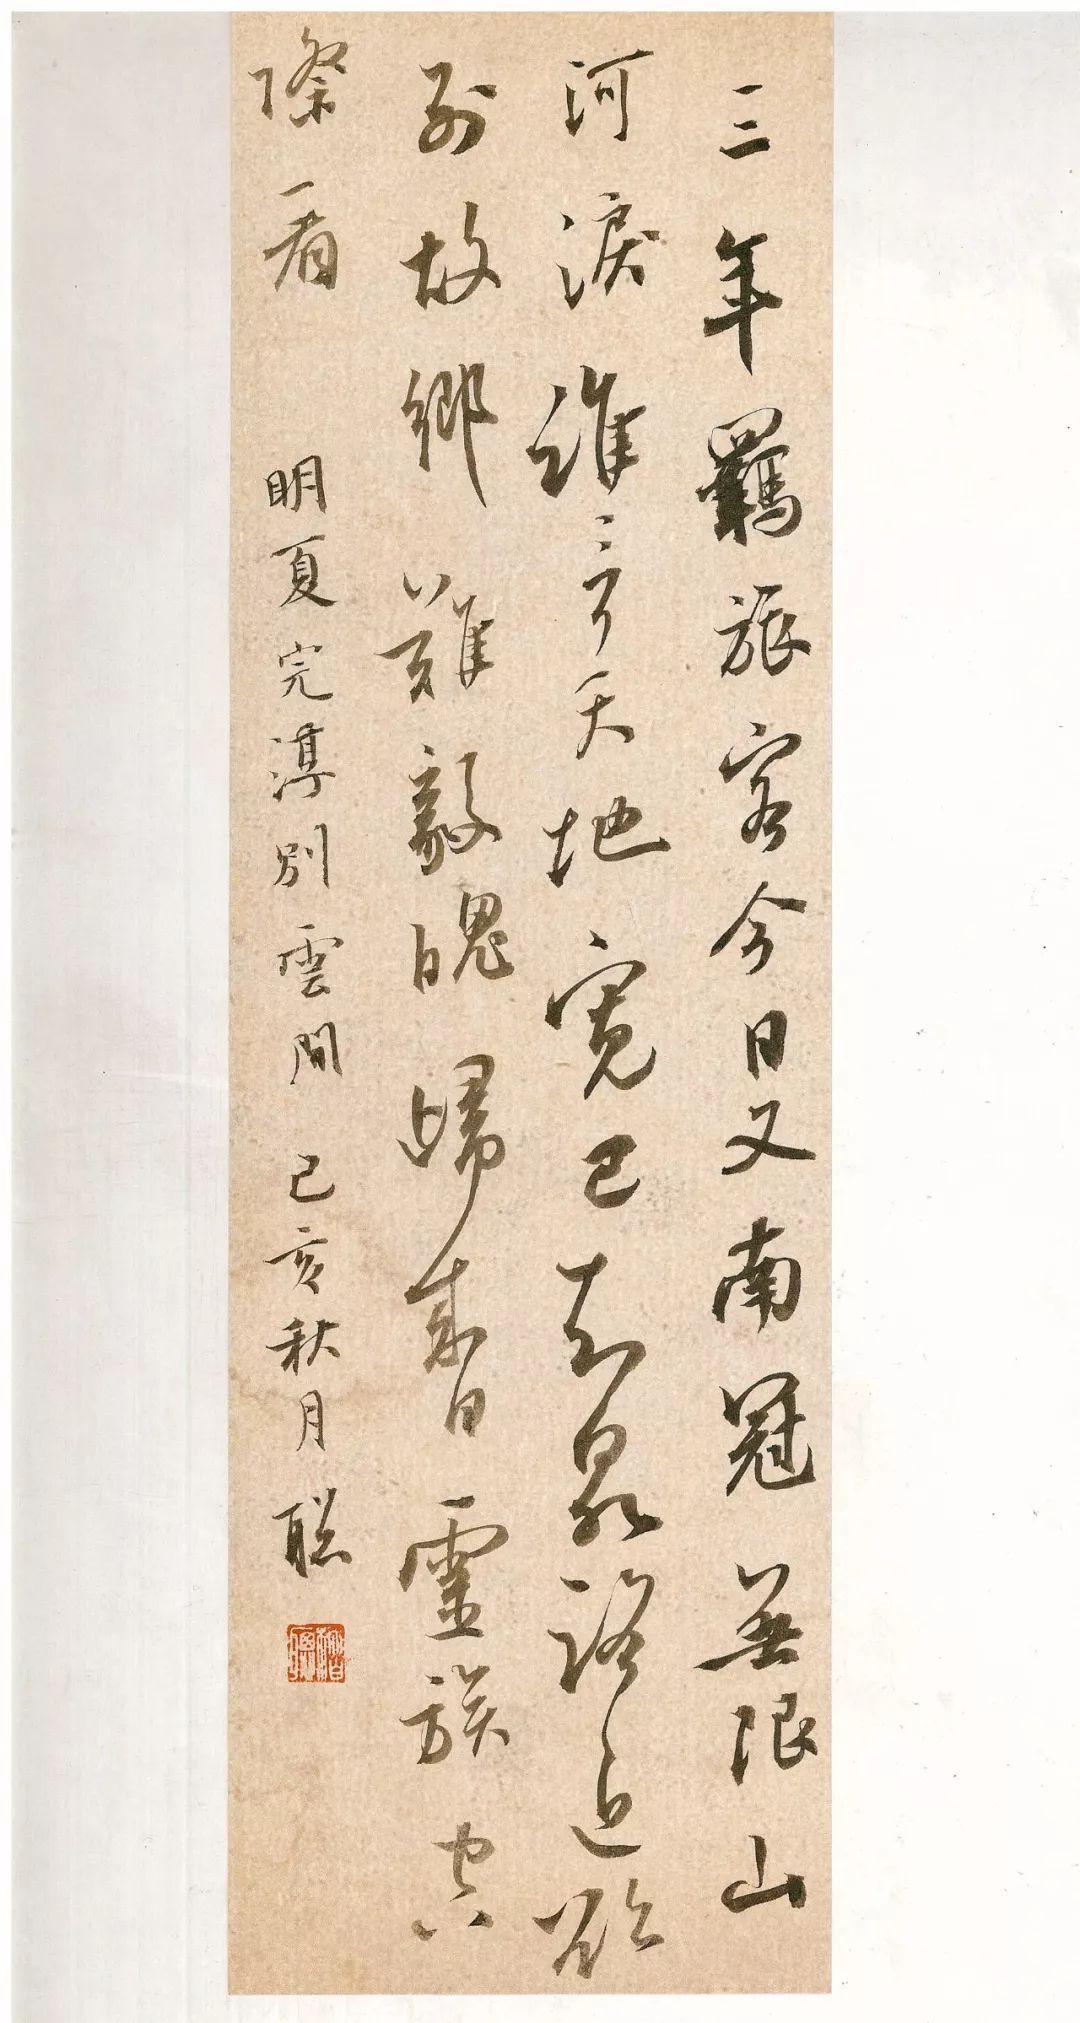 三年羈旅客今日又南冠無限山
河淚誰言天地寬已知泉路近欲
別故鄉難毅魄歸來日靈旗空
際看
明夏完淳別雲間 己亥秋月 聪